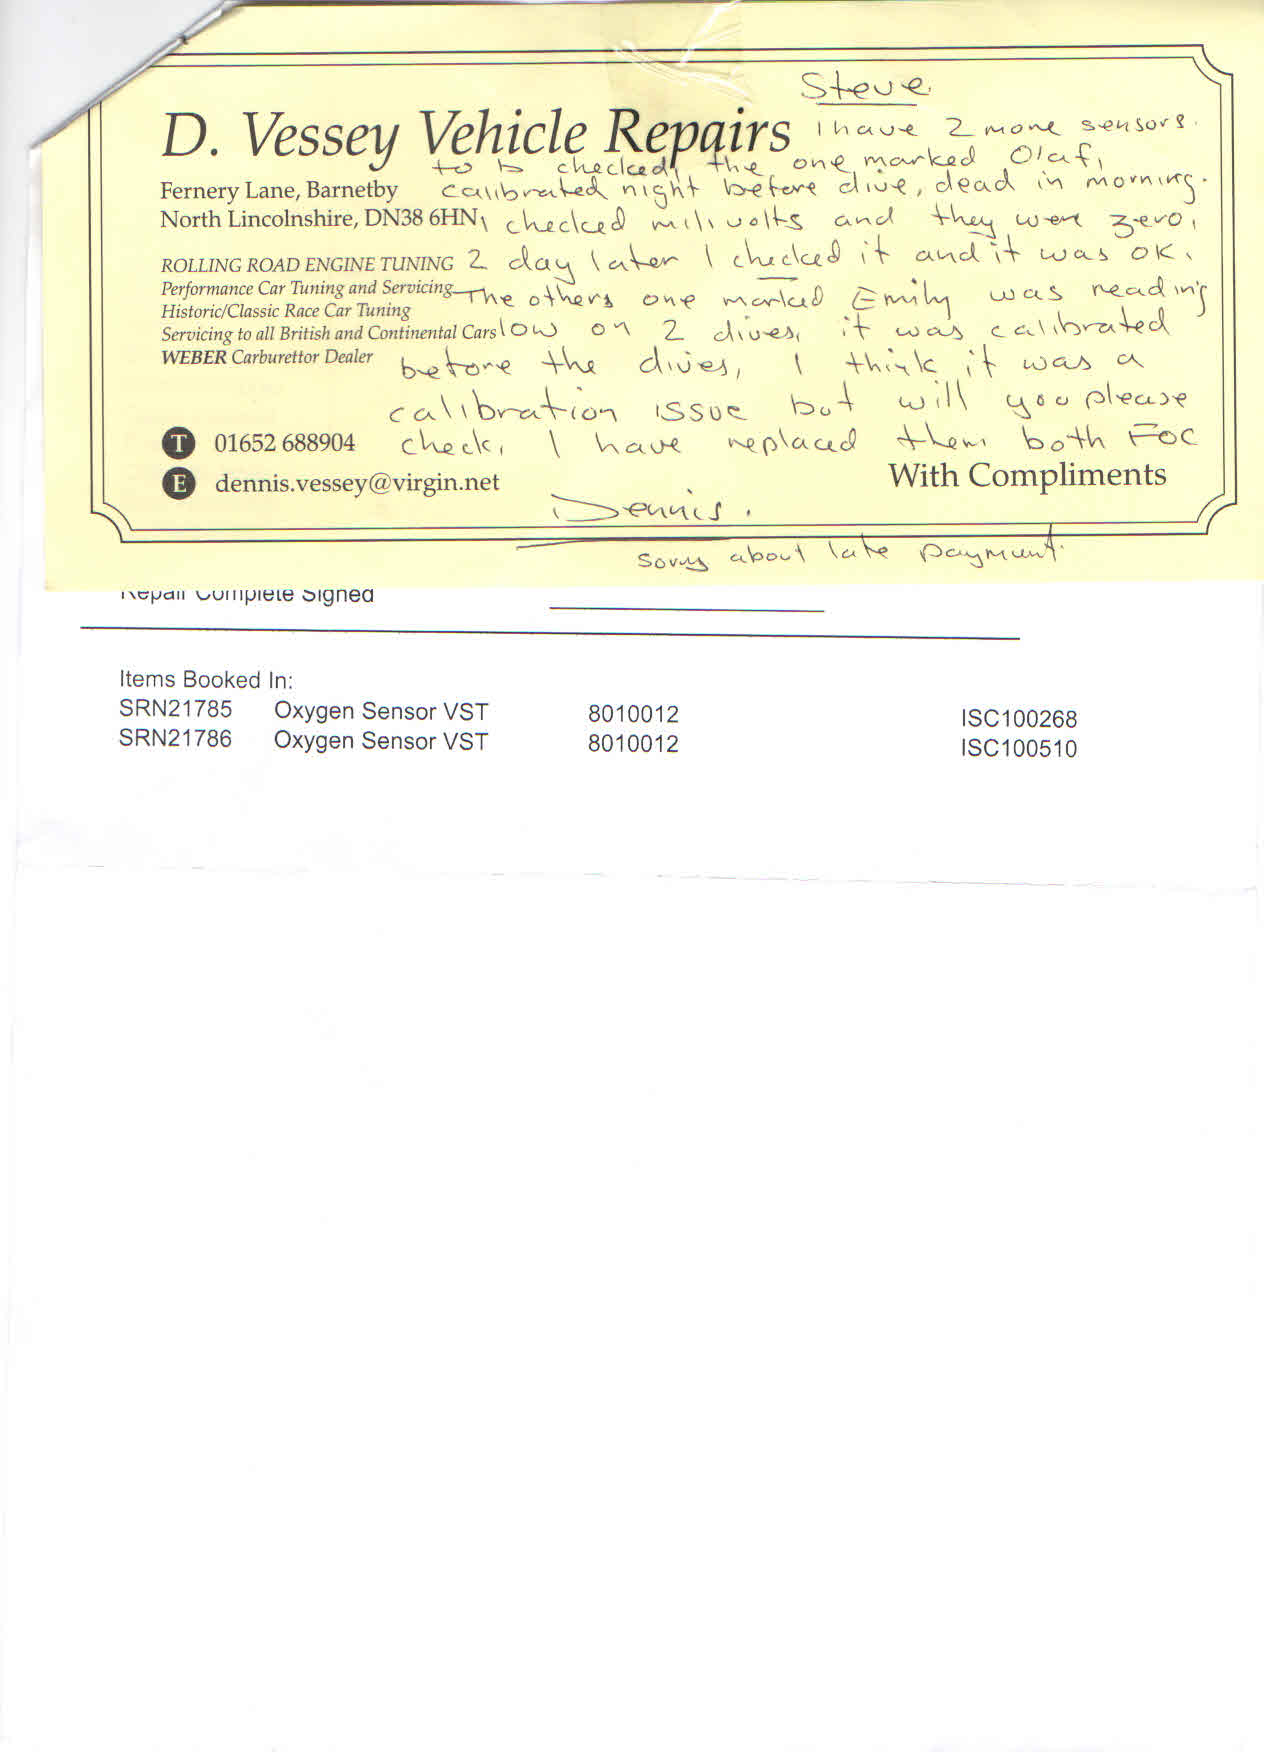 Steve
D. Vessey Vehicle Repairs I have 2 more sensors.
to b checked, the one marked Olaf,
Fernery Lane, Barnetby calibrated night before dive, dead in morning.
North Lincolnshire, DN38 6HN I checked milivolts and they were zero,
ROLLING ROAD ENGINE TUNING 2 day later I checked it and it was OK.
Performance Car Tuning and Servicing The others one marked Emily was reading
Historic/Classic Race Car Tuning
Servicing to all British and Continental Cars low on 2 dives, it was calibrated
WEBER Carburettor Dealer before the dives, I think it was a
calibration issue but will you please
T 01652 688904 check, I have replaced them both FOC
E dennis.vessey@virgin.net With Compliments
Dennis.
Sorry about late payment.
Repair Complete Signed
Items Booked In:
SRN21785 Oxygen Sensor VST 8010012 ISC100268
SRN21786 Oxygen Sensor VST 8010012 ISC100510